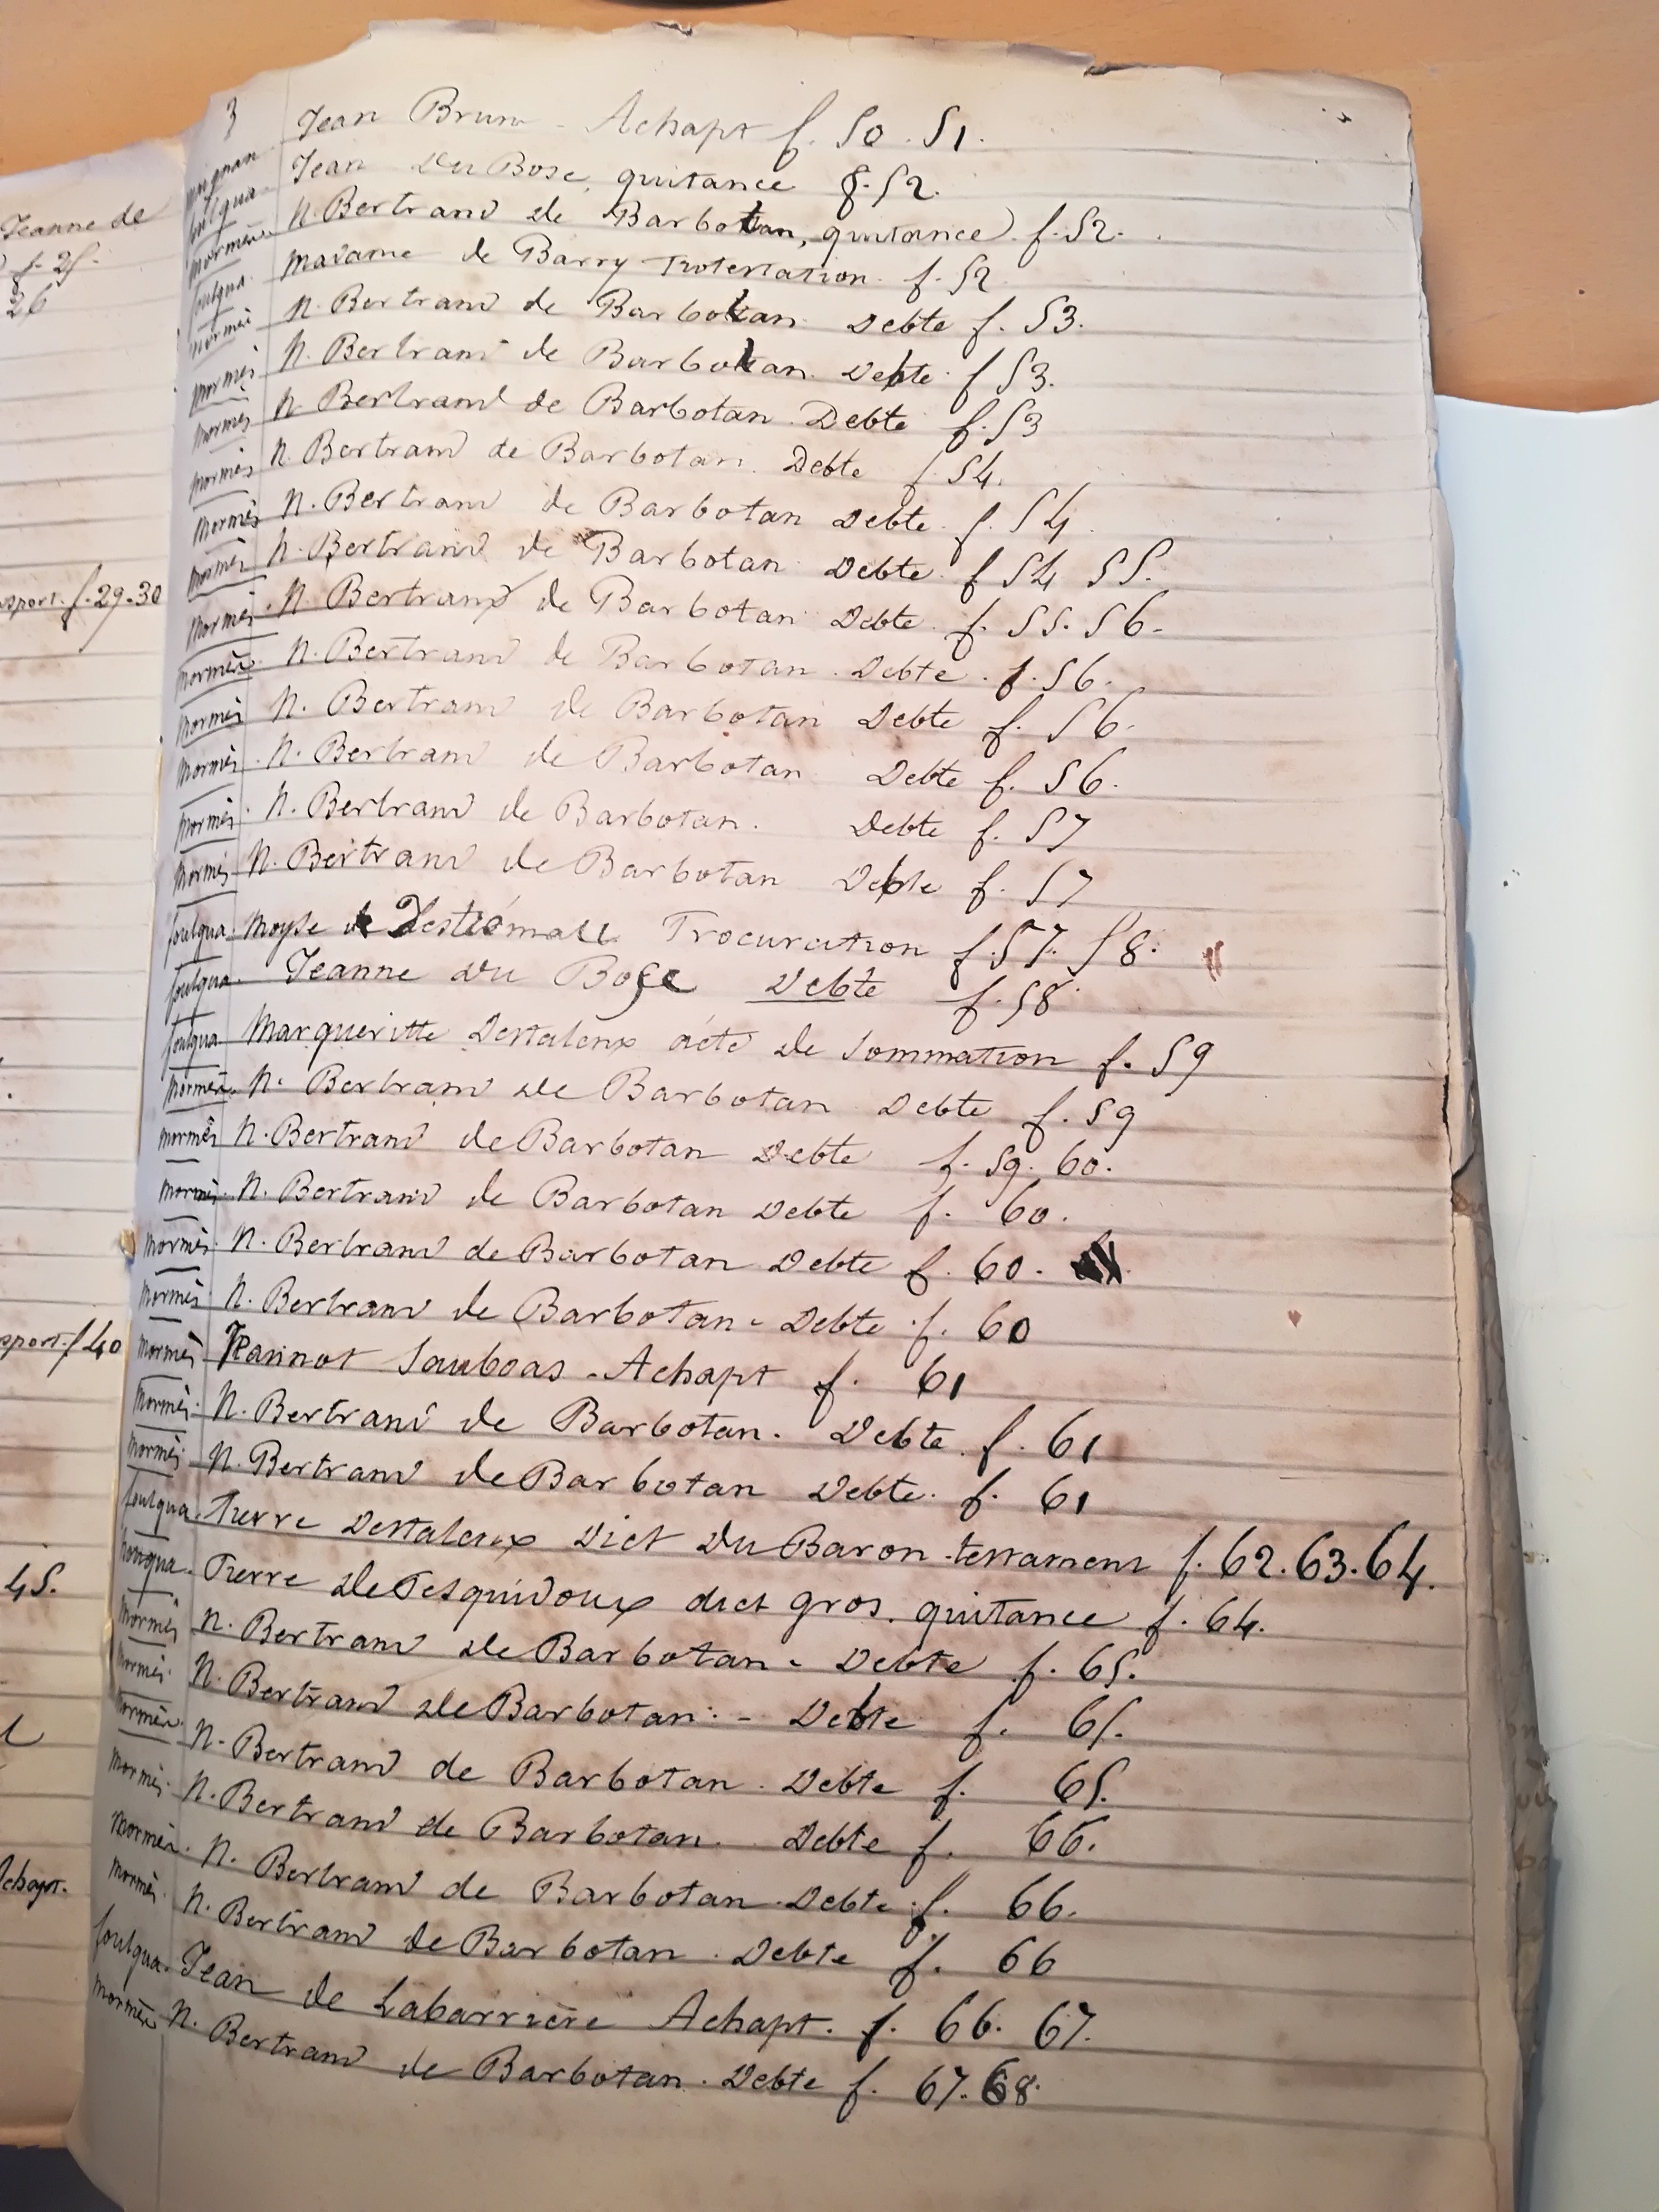 Jeanne de
f. 25.
26
sport. f. 29-30
sport. f 40
45.
Achapt.
3
Jean Brum - Achapt f. 50. 51.
Jean Du Bosc, quitance f. 52.
foulqua N. Bertrand de Barbotan, quitance f. 52.
mormès Madame de Barry Protestation. f. 52
foulqua. N. Bertrand de Barbotan Debte f. 53.
mormès N. Bertrand de Barbotan. Debte f 53.
mormès N. Bertrand de Barbotan. Debte f. 53
mormès N. Bertrand de Barbotan. Debte f. 54.
mormès N. Bertrand de Barbotan Debte. f. 54
mormès N. Bertrand de Barbotan Debte f 54 55.
mormès N. Bertrand de Barbotan Debte f. 55. 56-
mormès N. Bertrand de Barbotan. Debte. f. 56.
mormès. N. Bertrand de Barbotan Debte f. 56.
mormès N. Bertrand de Barbotan Debte f. 56.
mormès. N. Bertrand de Barbotan. Debte f. 57
mormès. N. Bertrand de Barbotan Debte f. 57
foulqua. Moyse de Procuration f. 57. 58.
foulqua. Jeanne Du Bosc Debte f. 58
foulqua Marqueritte Destaleux acte de sommation f. 59
mormès. N. Bertrand de Barbotan Debte f. 59
mormès N. Bertrand de Barbotan Debte f. 59. 60.
mormès. N. Bertrand de Barbotan Debte f. 60.
mormès. N. Bertrand de Barbotan Debte f. 60.
mormès. N. Bertrand de Barbotan - Debte f. 60
mormès Jeannot Sauboas - Achapt f. 61
mormès. N. Bertrand de Barbotan. Debte. f. 61
mormès. N. Bertrand de Barbotan Debte. f. 61
foulqua. Pierre Destaleux Dict Du Baron testament f. 62. 63. 64.
foulqua. Pierre De Pesquidoux dict gros. quitance f. 64.
mormès N. Bertrand de Barbotan - Debte f. 65.
mormès. N. Bertrand de Barbotan. - Debte f. 65.
mormès. N. Bertrand de Barbotan. Debte f. 65.
mormès. N. Bertrand de Barbotan. Debte f. 66.
mormès. N. Bertrand de Barbotan. Debte. f. 66.
mormès. N. Bertrand de Barbotan. Debte f. 66
foulqua. Jean de Labarrière Achapt. f. 66. 67.
mormès N. Bertrand de Barbotan. Debte f. 67. 68.